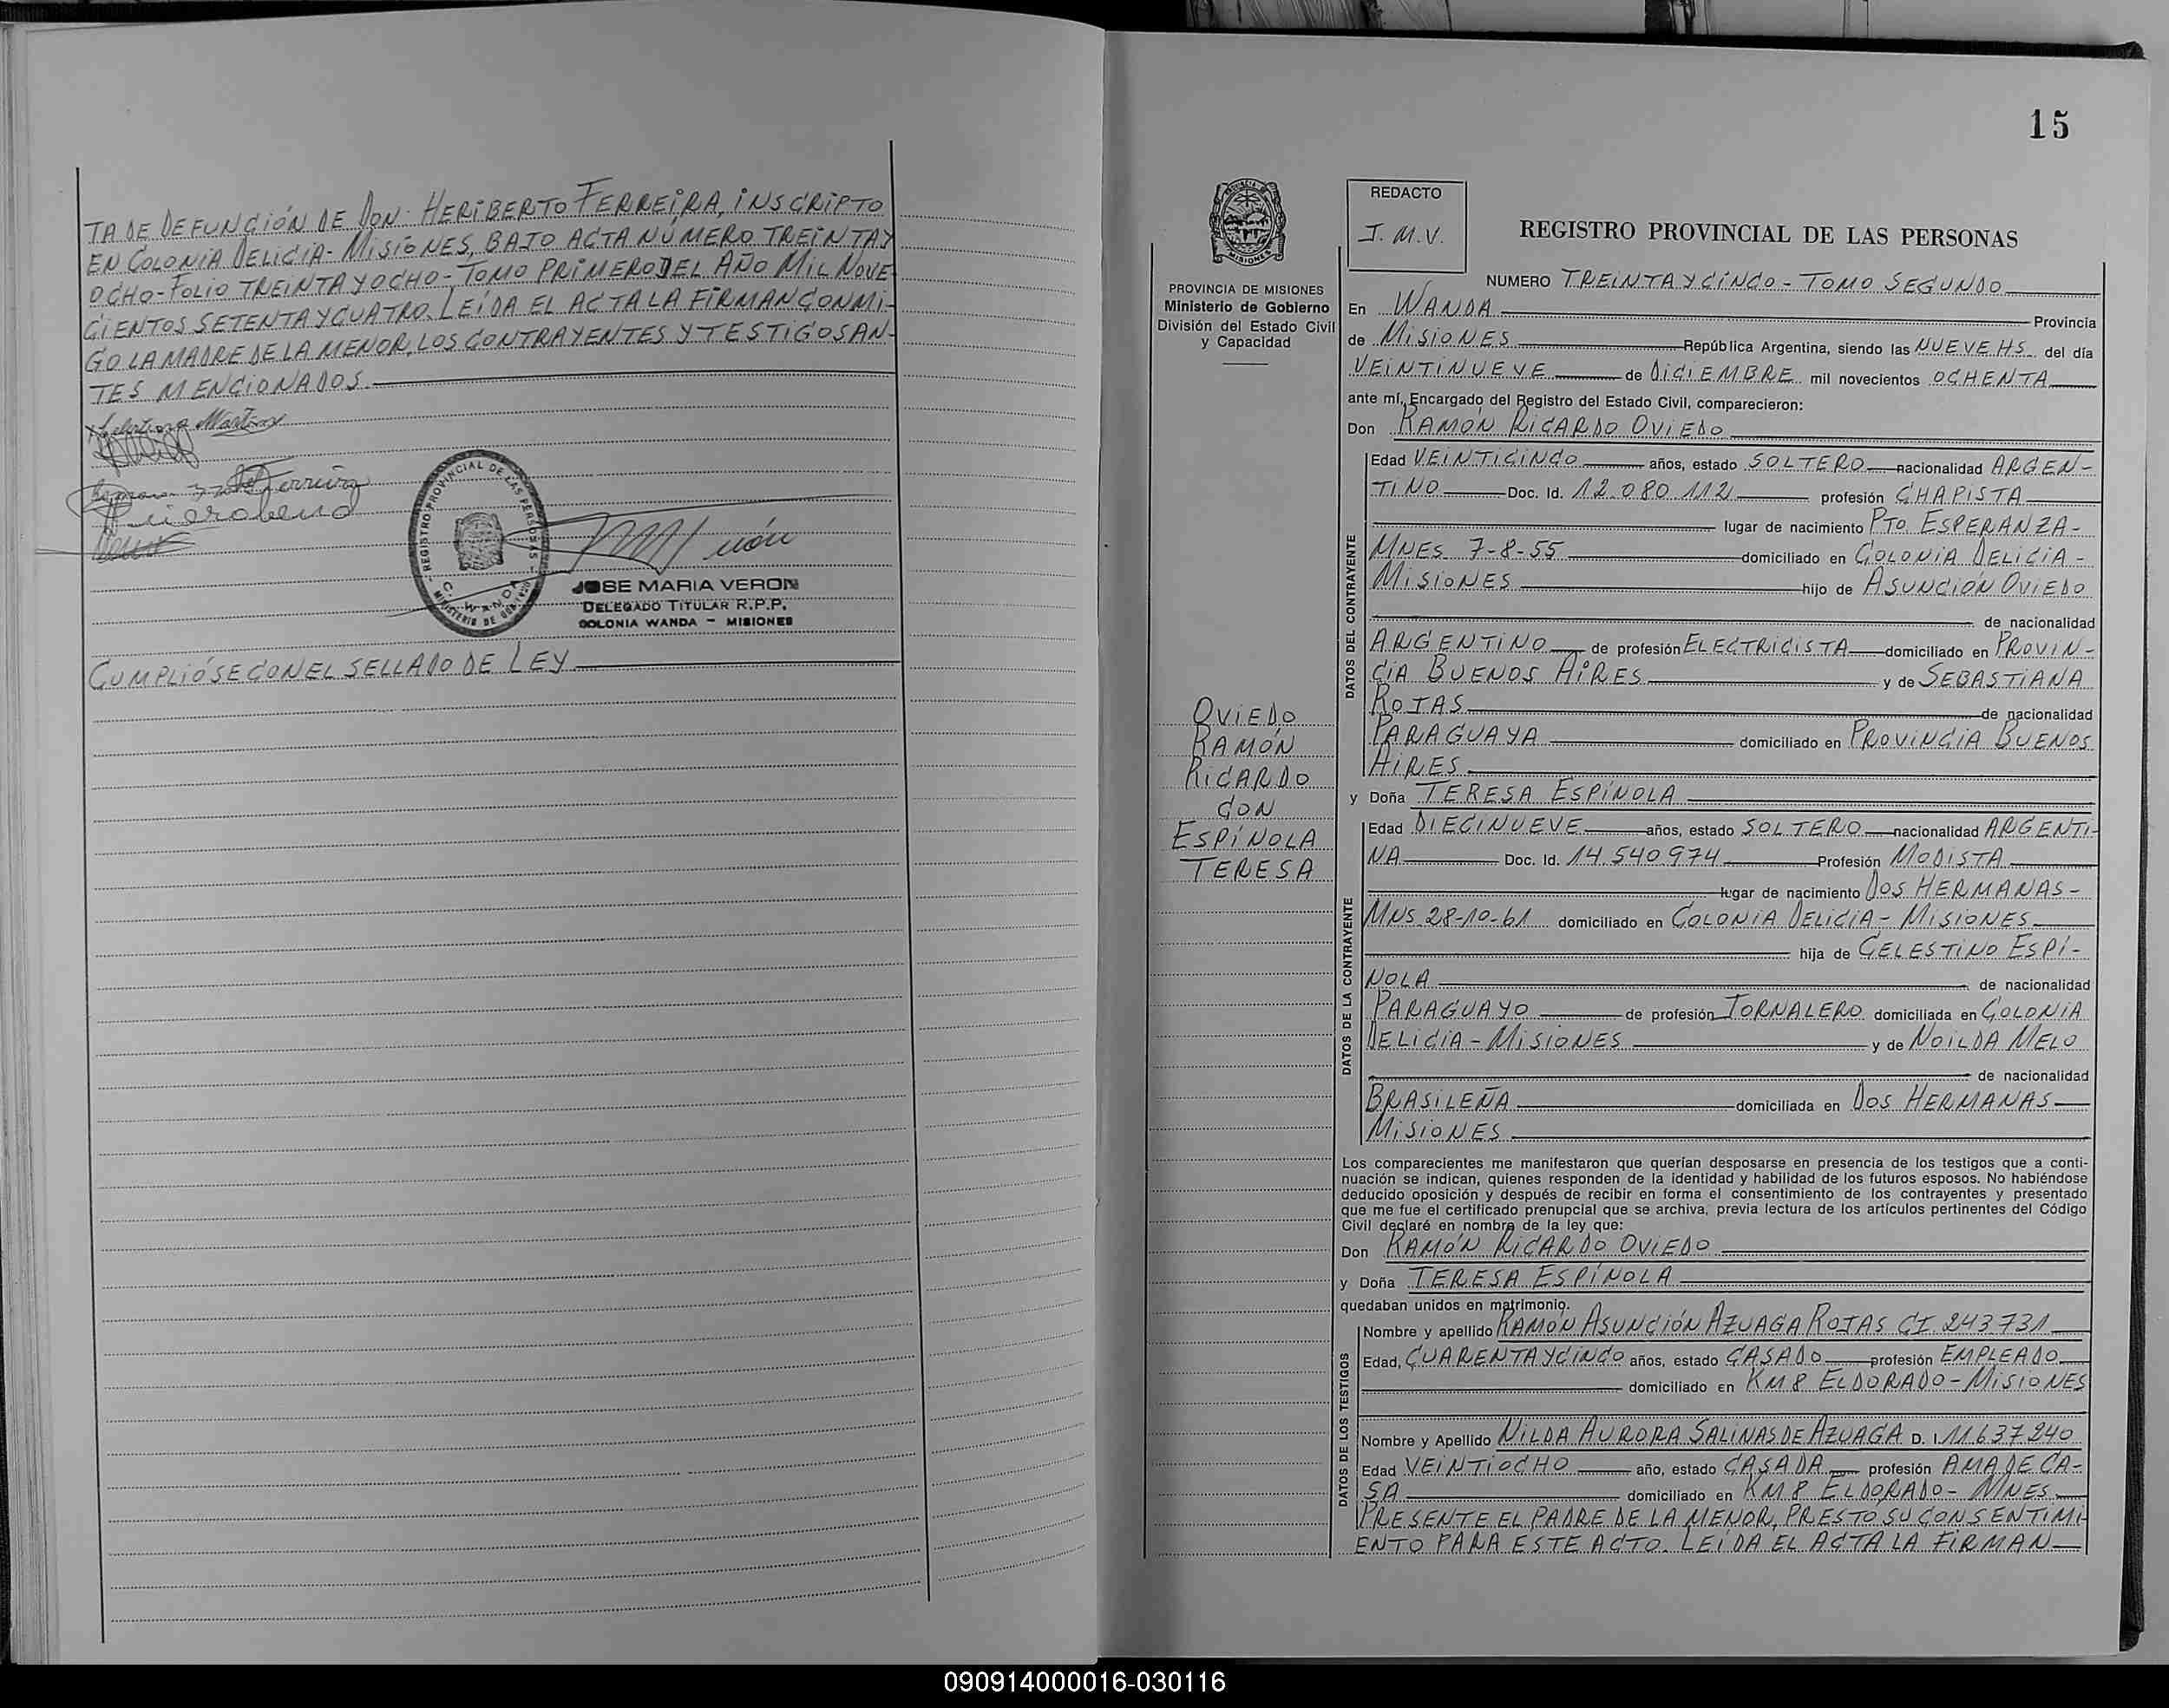 TA DE DEFUNCIÓN DE DON HERIBERTO FERREIRA, INSCRIPTO
EN COLONIA DELICIA - MISIONES, BAJO ACTA NÚMERO TREINTA Y
OCHO - FOLIO TREINTA Y OCHO - TOMO PRIMERO DEL AÑO MIL NOVE-
CIENTOS SETENTA Y CUATRO. LEÍDA EL ACTA LA FIRMAN CONMI-
GO LA MADRE DE LA MENOR, LOS CONTRAYENTES Y TESTIGOS AN-
TES MENCIONADOS.
REGISTRO PROVINCIAL DE LAS PERSONAS
C. WANDA
MINISTERIO DE GOBIERNO
JOSE MARIA VERON
DELEGADO TITULAR R.P.P.
COLONIA WANDA - MISIONES
CUMPLIÓSE CON EL SELLADO DE LEY
15
PROVINCIA DE MISIONES
Ministerio de Gobierno
División del Estado Civil
y Capacidad
OVIEDO
RAMÓN
RICARDO
CON
ESPÍNOLA
TERESA
REDACTO
J. M. V.
REGISTRO PROVINCIAL DE LAS PERSONAS
NUMERO TREINTA Y CINCO - TOMO SEGUNDO
En WANDA Provincia
de MISIONES República Argentina, siendo las NUEVE HS. del día
VEINTINUEVE de DICIEMBRE mil novecientos OCHENTA
ante mí, Encargado del Registro del Estado Civil, comparecieron:
Don RAMÓN RICARDO OVIEDO
DATOS DEL CONTRAYENTE
Edad VEINTICINCO años, estado SOLTERO nacionalidad ARGEN-
TINO Doc. Id. 12.080.112 profesión CHAPISTA
lugar de nacimiento PTO. ESPERANZA-
MNES. 7-8-55 domiciliado en COLONIA DELICIA-
MISIONES hijo de ASUNCIÓN OVIEDO
de nacionalidad
ARGENTINO de profesión ELECTRICISTA domiciliado en PROVIN-
CIA BUENOS AIRES y de SEBASTIANA
ROJAS de nacionalidad
PARAGUAYA domiciliado en PROVINCIA BUENOS
AIRES
y Doña TERESA ESPÍNOLA
DATOS DE LA CONTRAYENTE
Edad DIECINUEVE años, estado SOLTERO nacionalidad ARGENTI-
NA Doc. Id. 14.540.974 Profesión MODISTA
lugar de nacimiento DOS HERMANAS-
MNS. 28-10-61 domiciliado en COLONIA DELICIA - MISIONES
hija de CELESTINO ESPÍ-
NOLA de nacionalidad
PARAGUAYO de profesión JORNALERO domiciliada en COLONIA
DELICIA - MISIONES y de NOILDA MELO
de nacionalidad
BRASILEÑA domiciliada en DOS HERMANAS
MISIONES
Los comparecientes me manifestaron que querían desposarse en presencia de los testigos que a conti-
nuación se indican, quienes responden de la identidad y habilidad de los futuros esposos. No habiéndose
deducido oposición y después de recibir en forma el consentimiento de los contrayentes y presentado
que me fue el certificado prenupcial que se archiva, previa lectura de los artículos pertinentes del Código
Civil declaré en nombre de la ley que:
Don RAMÓN RICARDO OVIEDO
y Doña TERESA ESPÍNOLA
quedaban unidos en matrimonio.
DATOS DE LOS TESTIGOS
Nombre y apellido RAMÓN ASUNCIÓN AZUAGA ROJAS CI. 243.731
Edad, CUARENTA Y CINCO años, estado CASADO profesión EMPLEADO
domiciliado en KM 8 ELDORADO - MISIONES
Nombre y Apellido NILDA AURORA SALINAS DE AZUAGA D. I. 11.637.240
Edad VEINTIOCHO año, estado CASADA profesión AMA DE CA-
SA domiciliado en KM 8 ELDORADO - MNES.
PRESENTE EL PADRE DE LA MENOR, PRESTO SU CONSENTIMI-
ENTO PARA ESTE ACTO. LEÍDA EL ACTA LA FIRMAN
090914000016-030116